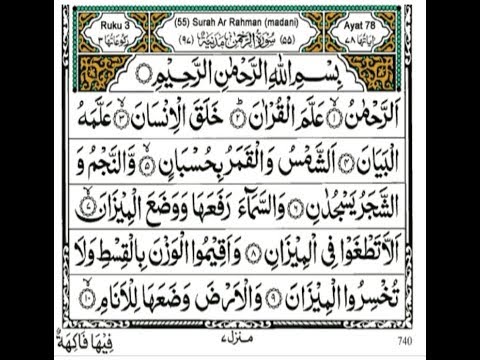 Ruku 3 (55) Surah Ar Rahman (madani) Ayat 78
رکوعاتها ٣ (٥٥) سُوْرَةُ الرَّحْمٰنِ مَدَنِيَّةٌ (٩٧) اٰیاتها ٧٨
بِسْمِ اللهِ الرَّحْمٰنِ الرَّحِيْمِ
اَلرَّحْمٰنُ ۙ‏﴿١﴾ عَلَّمَ الْقُرْاٰنَ ؕ‏﴿٢﴾ خَلَقَ الْاِنْسَانَ ۙ‏﴿٣﴾ عَلَّمَهُ
الْبَيَانَ ﴿٤﴾ اَلشَّمْسُ وَالْقَمَرُ بِحُسْبَانٍ ۪‏﴿٥﴾ وَّالنَّجْمُ وَ
الشَّجَرُ يَسْجُدٰنِ ﴿٦﴾ وَالسَّمَآءَ رَفَعَهَا وَوَضَعَ الْمِيْزَانَ ۙ‏﴿٧﴾
اَلَّا تَطْغَوْا فِى الْمِيْزَانِ ﴿٨﴾ وَاَقِيْمُوا الْوَزْنَ بِالْقِسْطِ وَلَا
تُخْسِرُوا الْمِيْزَانَ ﴿٩﴾ وَالْاَرْضَ وَضَعَهَا لِلْاَنَامِ ۙ‏﴿١٠﴾
فِيْهَا فَاكِهَةٌ منزل ٧ 740